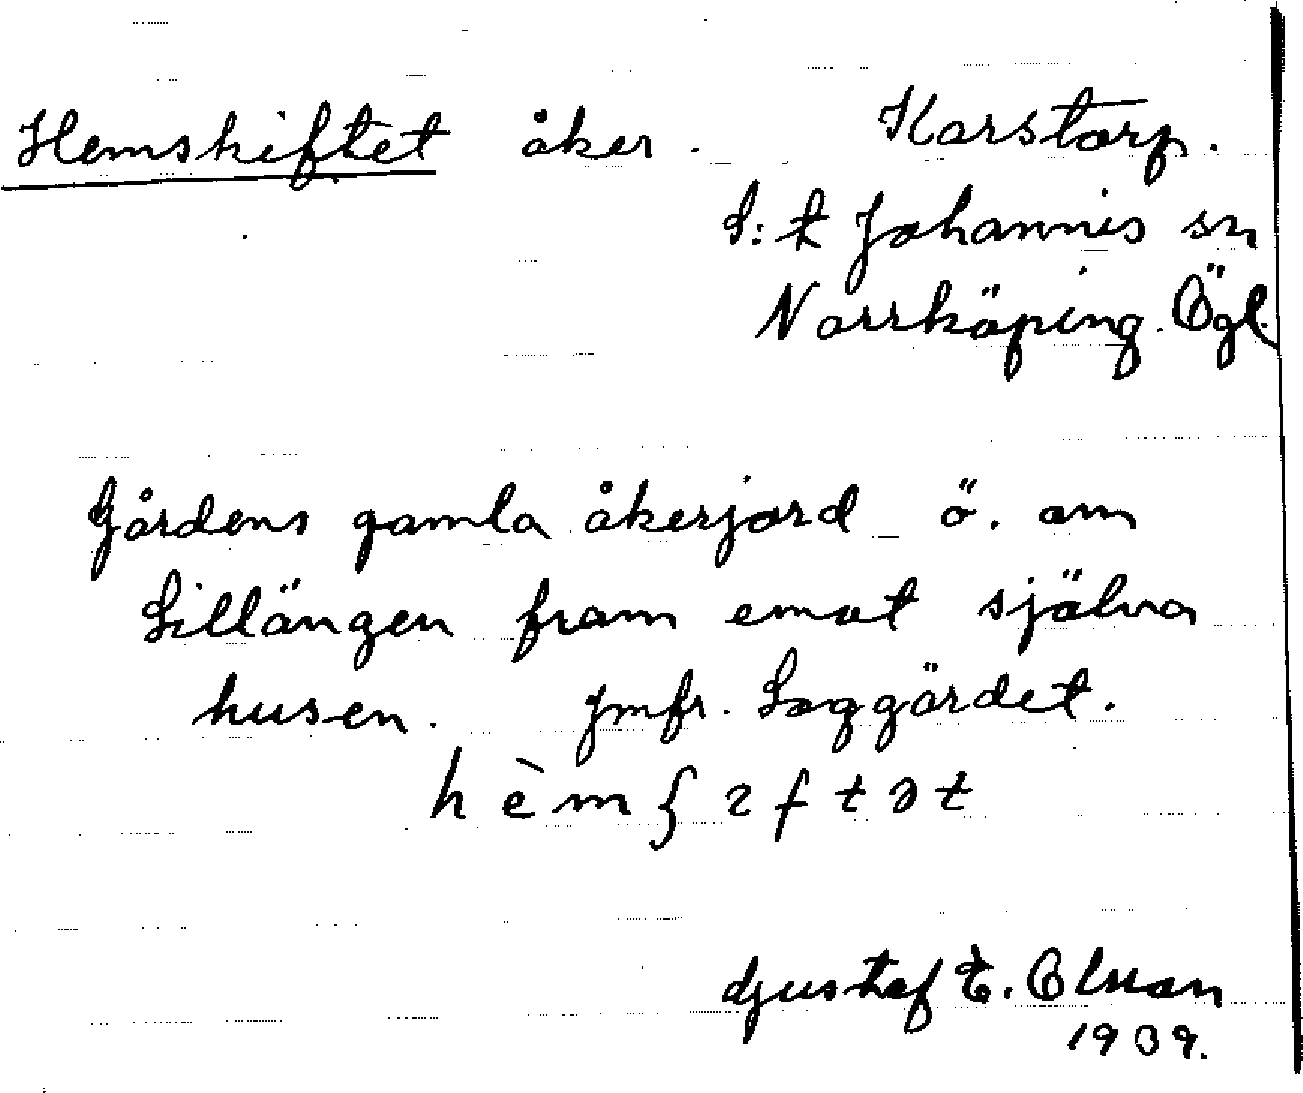 Hemskiftet åker. Karstorp.
S:t Johannis sn
Norrköping. Ögl.
Gårdens gamla åkerjord ö. om
Lillängen fram emot själva
husen. Jmfr. Loggärdet.
hèmʃ2ftət
Gustaf E. Olsson
1909.